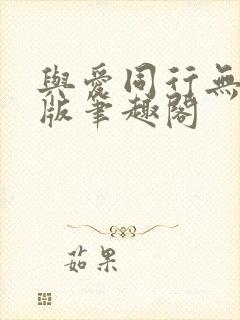 與愛同行無
版筆趣閣
茹果